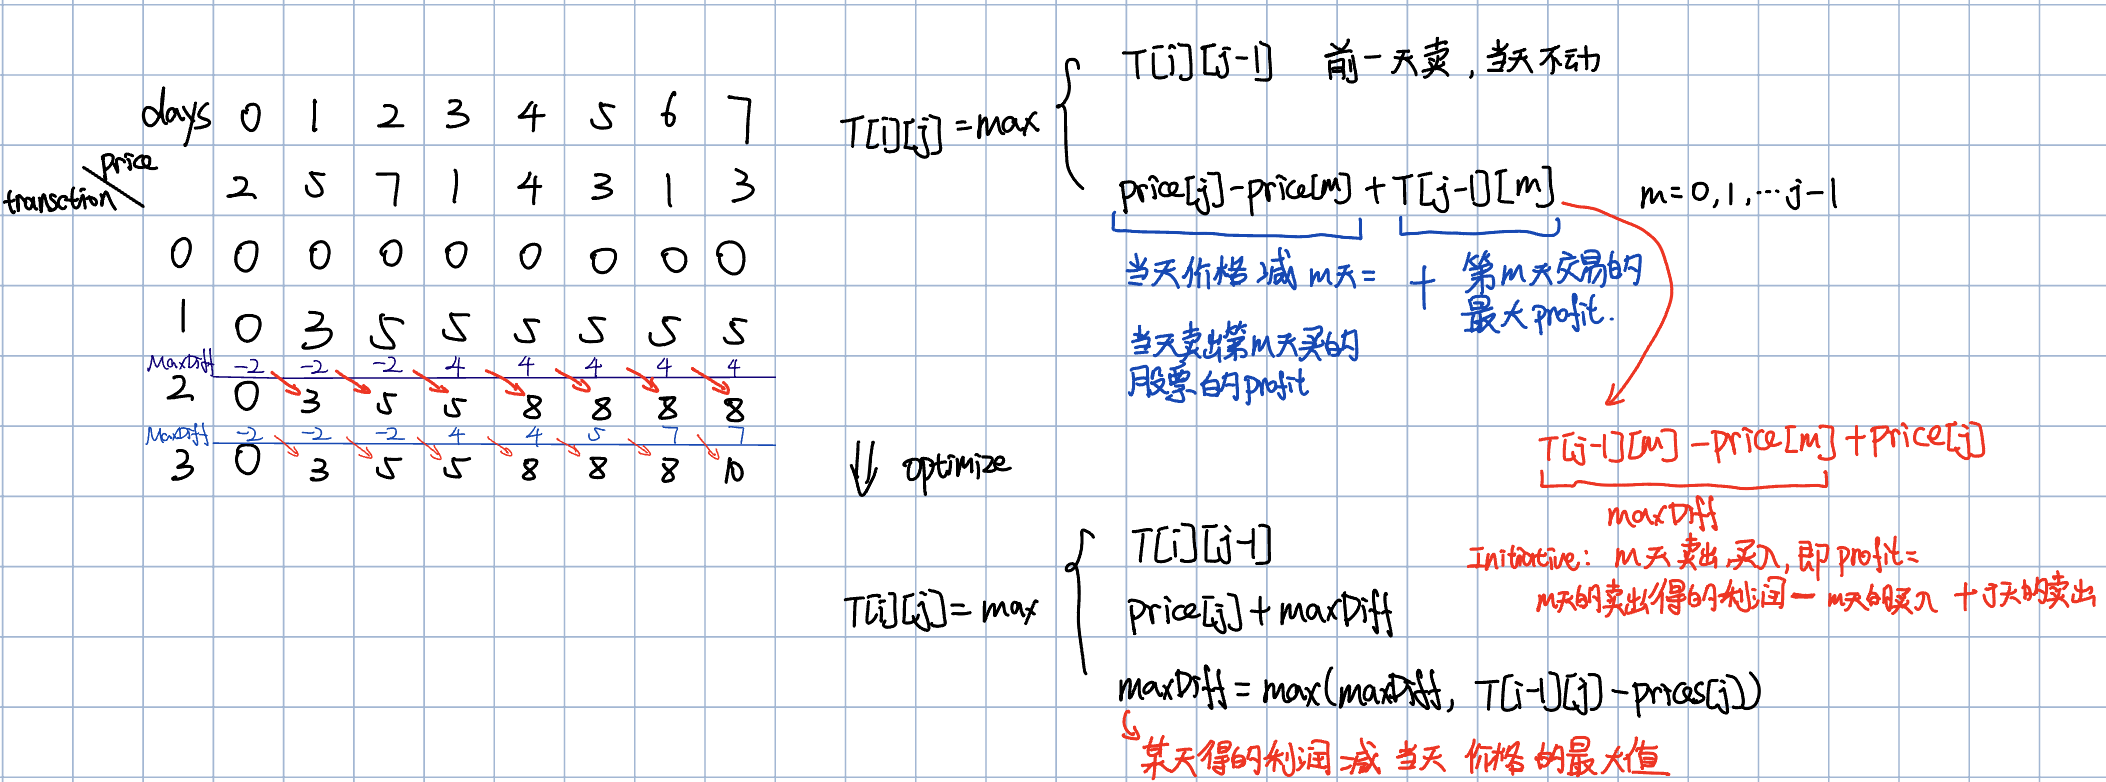 days 0 1 2 3 4 5 6 7
price
transction 2 5 7 1 4 3 1 3
0 0 0 0 0 0 0 0 0
1 0 3 5 5 5 5 5 5
MaxDiff -2 -2 -2 4 4 4 4 4
2 0 3 5 5 8 8 8 8
MaxDiff -2 -2 -2 4 4 5 7 7
3 0 3 5 5 8 8 8 10
T[i][j] = max
T[i][j-1] 前一天卖, 当天不动
price[j]-price[m] + T[j-1][m] m=0,1,…j-1
当天价格减m天= + 第m天交易的
最大profit.
当天卖出第m天买的
股票的profit
T[j-1][m] -price[m] +price[j]
maxDiff
Initiative: m天卖出,买入,即profit=
m天的卖出得的利润 - m天的买入 + j天的卖出
⇓ optimize
T[i][j] = max
T[i][j-1]
price[j] + maxDiff
maxDiff = max(maxDiff, T[i-1][j] -prices[j])
某天得的利润减当天价格的最大值